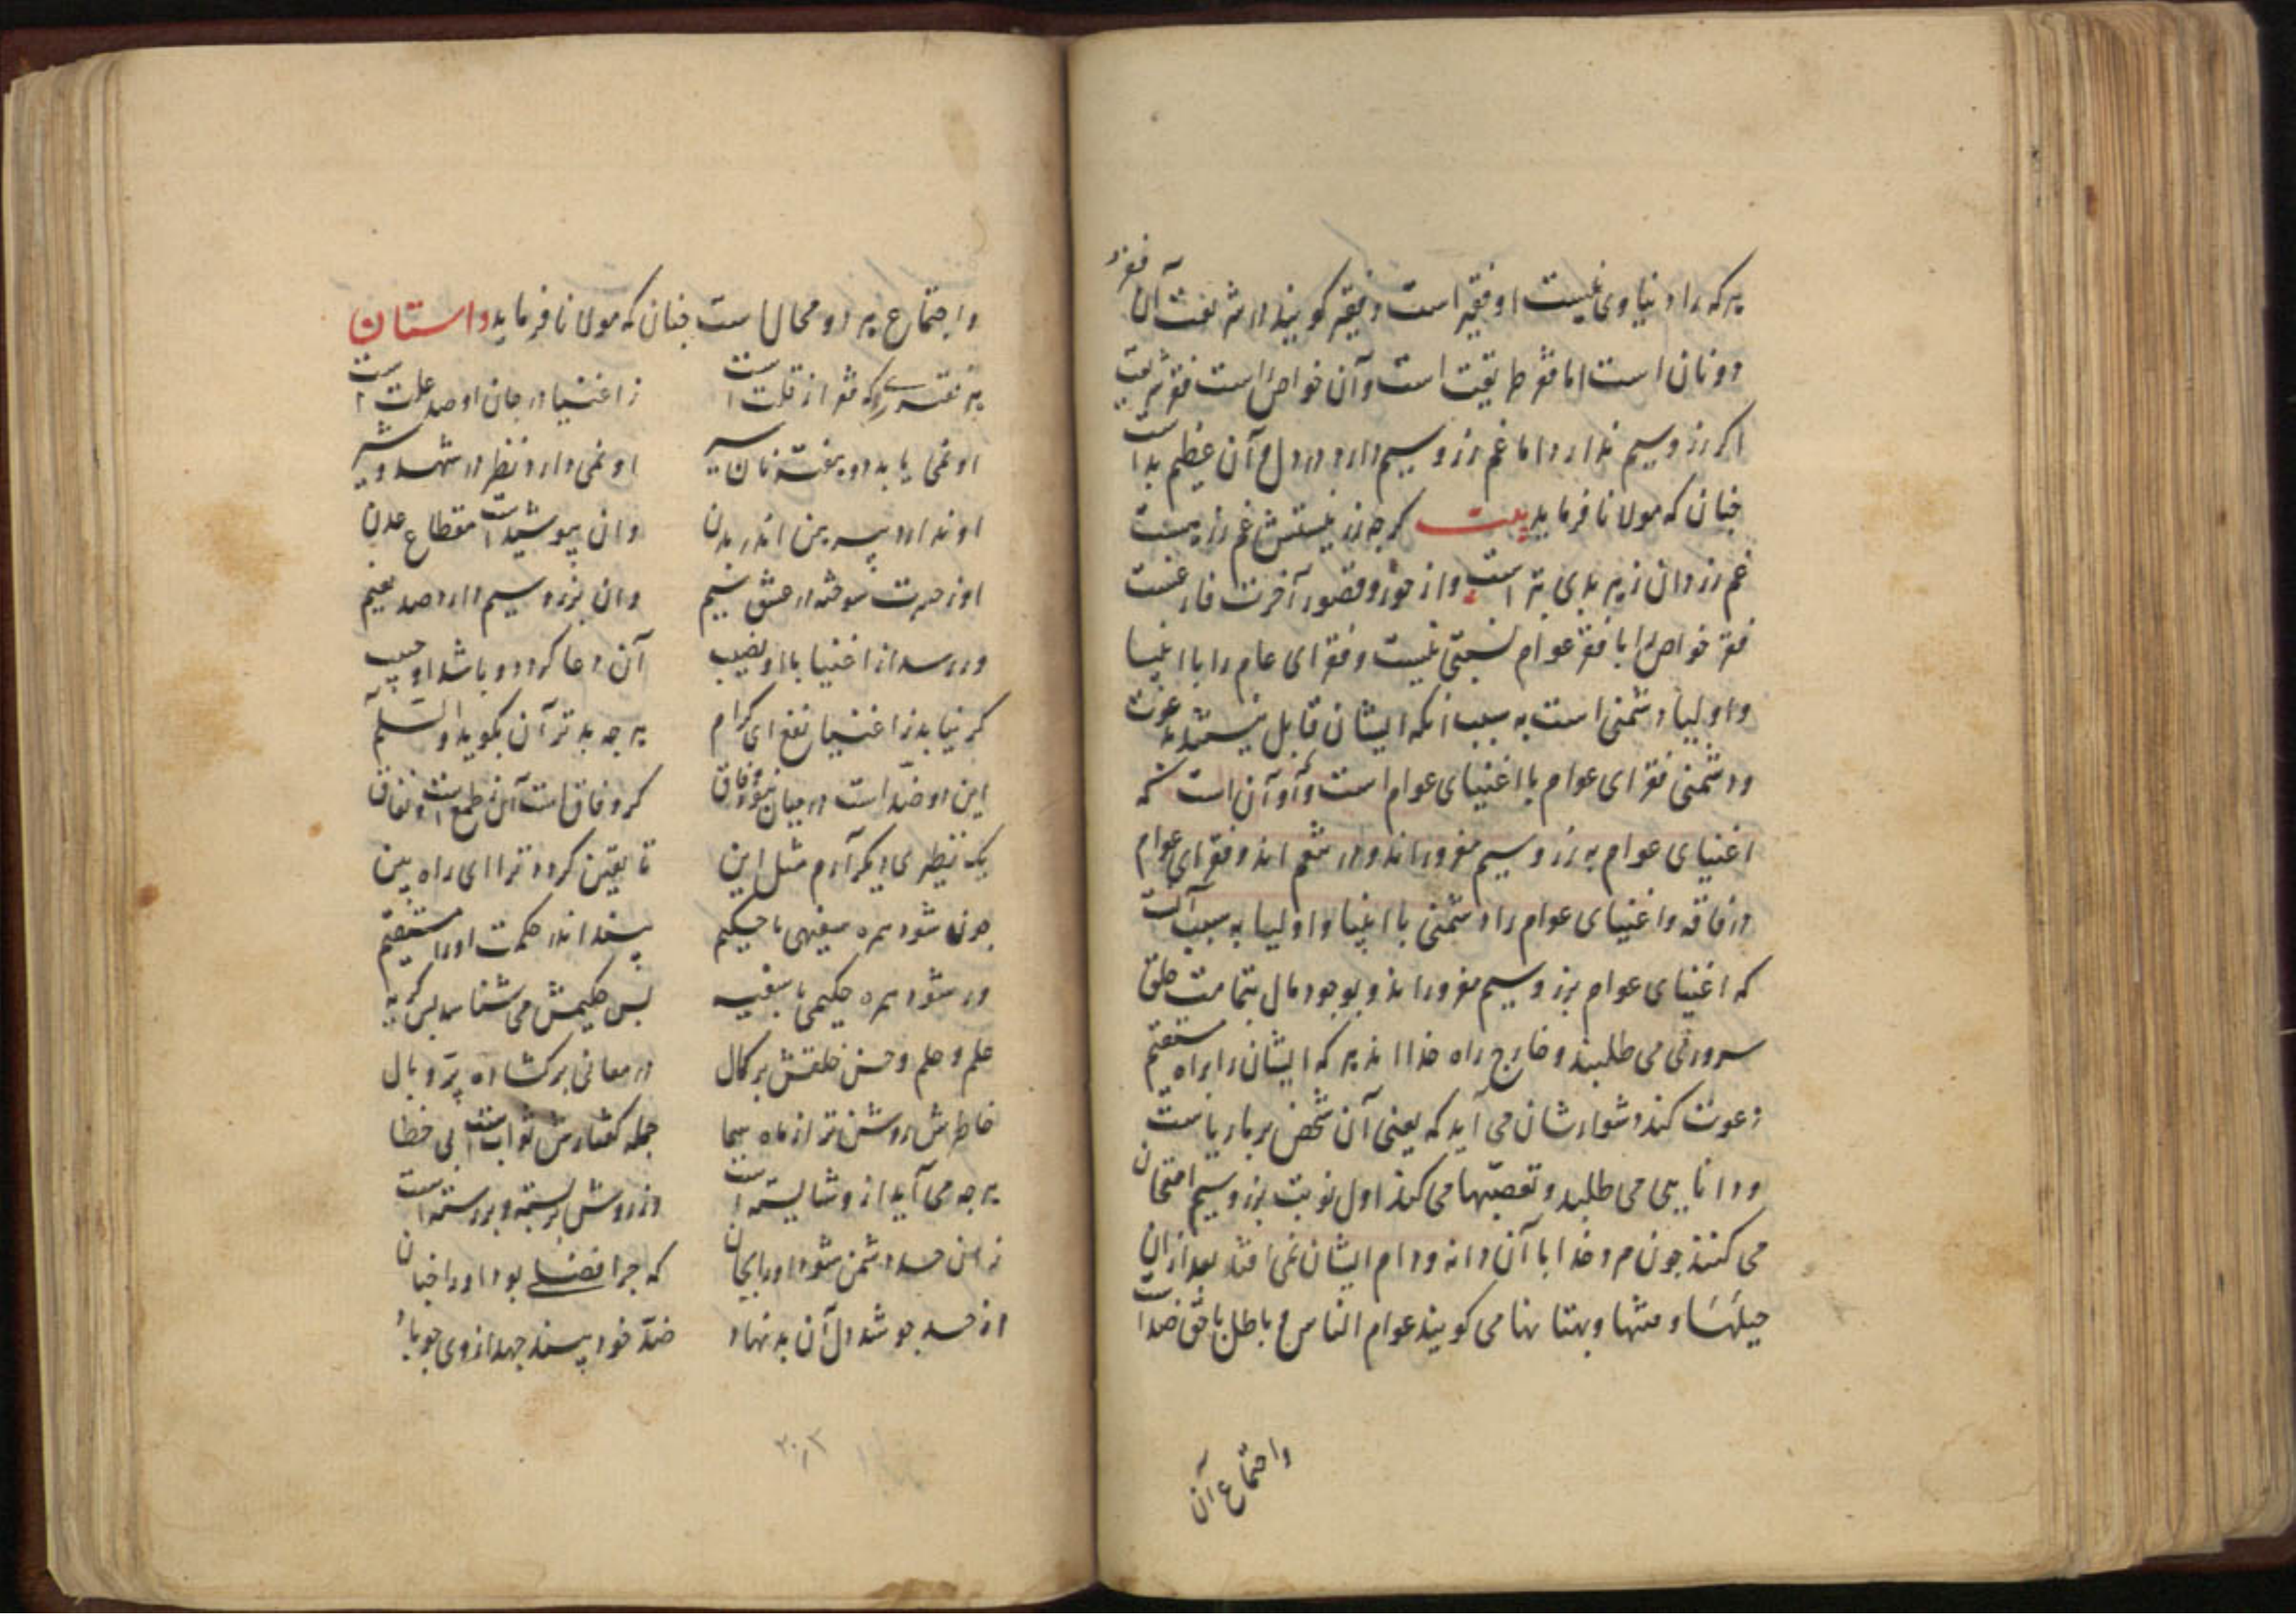 هر که را دنیاوی نیست او فقیر است و فقیر گویند در شریعت آن فقر
دونان است اما فقر طریقت است و آن خواص راست فقر شریعت
اگر زر و سیم ندارد اما غم زر و سیم دارد در دل و آن عظیم بد است
چنان که مولانا فرماید بیت گرچه زر نیستش غم زر هست
غم زر دان زهر بدی بتر است و از حور و قصور آخرت فارغست
فقر خواص را با فقر عوام نسبتی نیست و فقرای عام را با انبیا
و اولیا دشمنی است به سبب آنکه ایشان قابل نیستند به دعوت
و دشمنی فقرای عوام با اغنیای عوام است و آن است که
اغنیای عوام به زر و سیم مغرورند و در تنعم اند و فقرای عوام
در فاقه و اغنیای عوام را دشمنی با انبیا و اولیا به سبب آنست
که اغنیای عوام بزر و سیم مغرورند و بوجود مال بتمامت خلق
سروری می طلبند و خارج راه خدا اند هر که ایشان را براه مستقیم
دعوت کند دشوارشان می آید که یعنی آن شخص بر ما ریاست
و دانایی می طلبد و تعصبها می کنند اول نوبت بزر و سیم امتحان
می کنند چون مرد خدا با آن دانه و دام ایشان نمی افتد بعد از ان
حیلها و منتها و بهتانها می گویند عوام الناس و باطل با حق ضد است
واجتماع آن
واجتماع هر دو محال است چنان که مولانا فرماید داستان
هر فقیری را که فقر از قلت است زاغنیا در جان او صد علت است
او نمی یابد دو هفته نان سیر او نمی دارد نظر در شهد و شیر
او ندارد پیرهن اندر بدن وان بپوشیدست مقطاع عدن
او ز حسرت سوخته در عشق سیم وان بزر و سیم دارد صد نعیم
ور رسد از اغنیا با او نصیب آن دعا گردد و باشد او حبیب
گر نیابد ز اغنیا نفع ای کرام هر چه بدتر آن بگوید والسلام
این دو ضد است در میان نبود وفاق گر وفاق است آن طمع است و نفاق
یک نظیری دیگر آرم مثل این تا یقین گردد ترا ای راه بین
چون شود همره سفیهی با حکیم بیند اندر حکمت او را مستقیم
ور شود همره حکیمی با سفیه بس حکیمش می شناسد بس کریه
علم و حلم و حسن خلقش بر کمال در معانی برگشاده پر و بال
خاطرش روشن تر از ماه سما جمله گفتارش ثواب است بی خطا
هر چه می آید از و شایسته است
ز این حسد دشمن شود او را بجان که چرا فضلی بود او را چنان
از حسد جوشد دل آن بد نهاد ضد خود بیند جهد از وی چو باد
۲۰۳